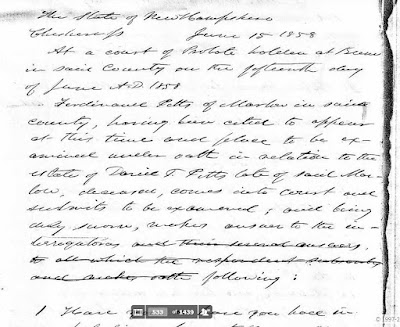 The State of New Hampshire
Cheshire ss June 15 1858
At a court of Probate holden at Keene
in said County on the fifteenth day
of June A.D. 1858
Ferdinand Petts of Marlow in said
county, having been cited to appear
at this time and place to be ex-
amined under oath in relation to the
estate of David T. Petts late of said Mar-
low, deceased, comes into court and
submits to be examined; and being
duly sworn, makes answer to the in-
terrogatories and their several answers
to all which the respondent
and makes oath following:
1 Have you
533 of 1439
© 1997-2